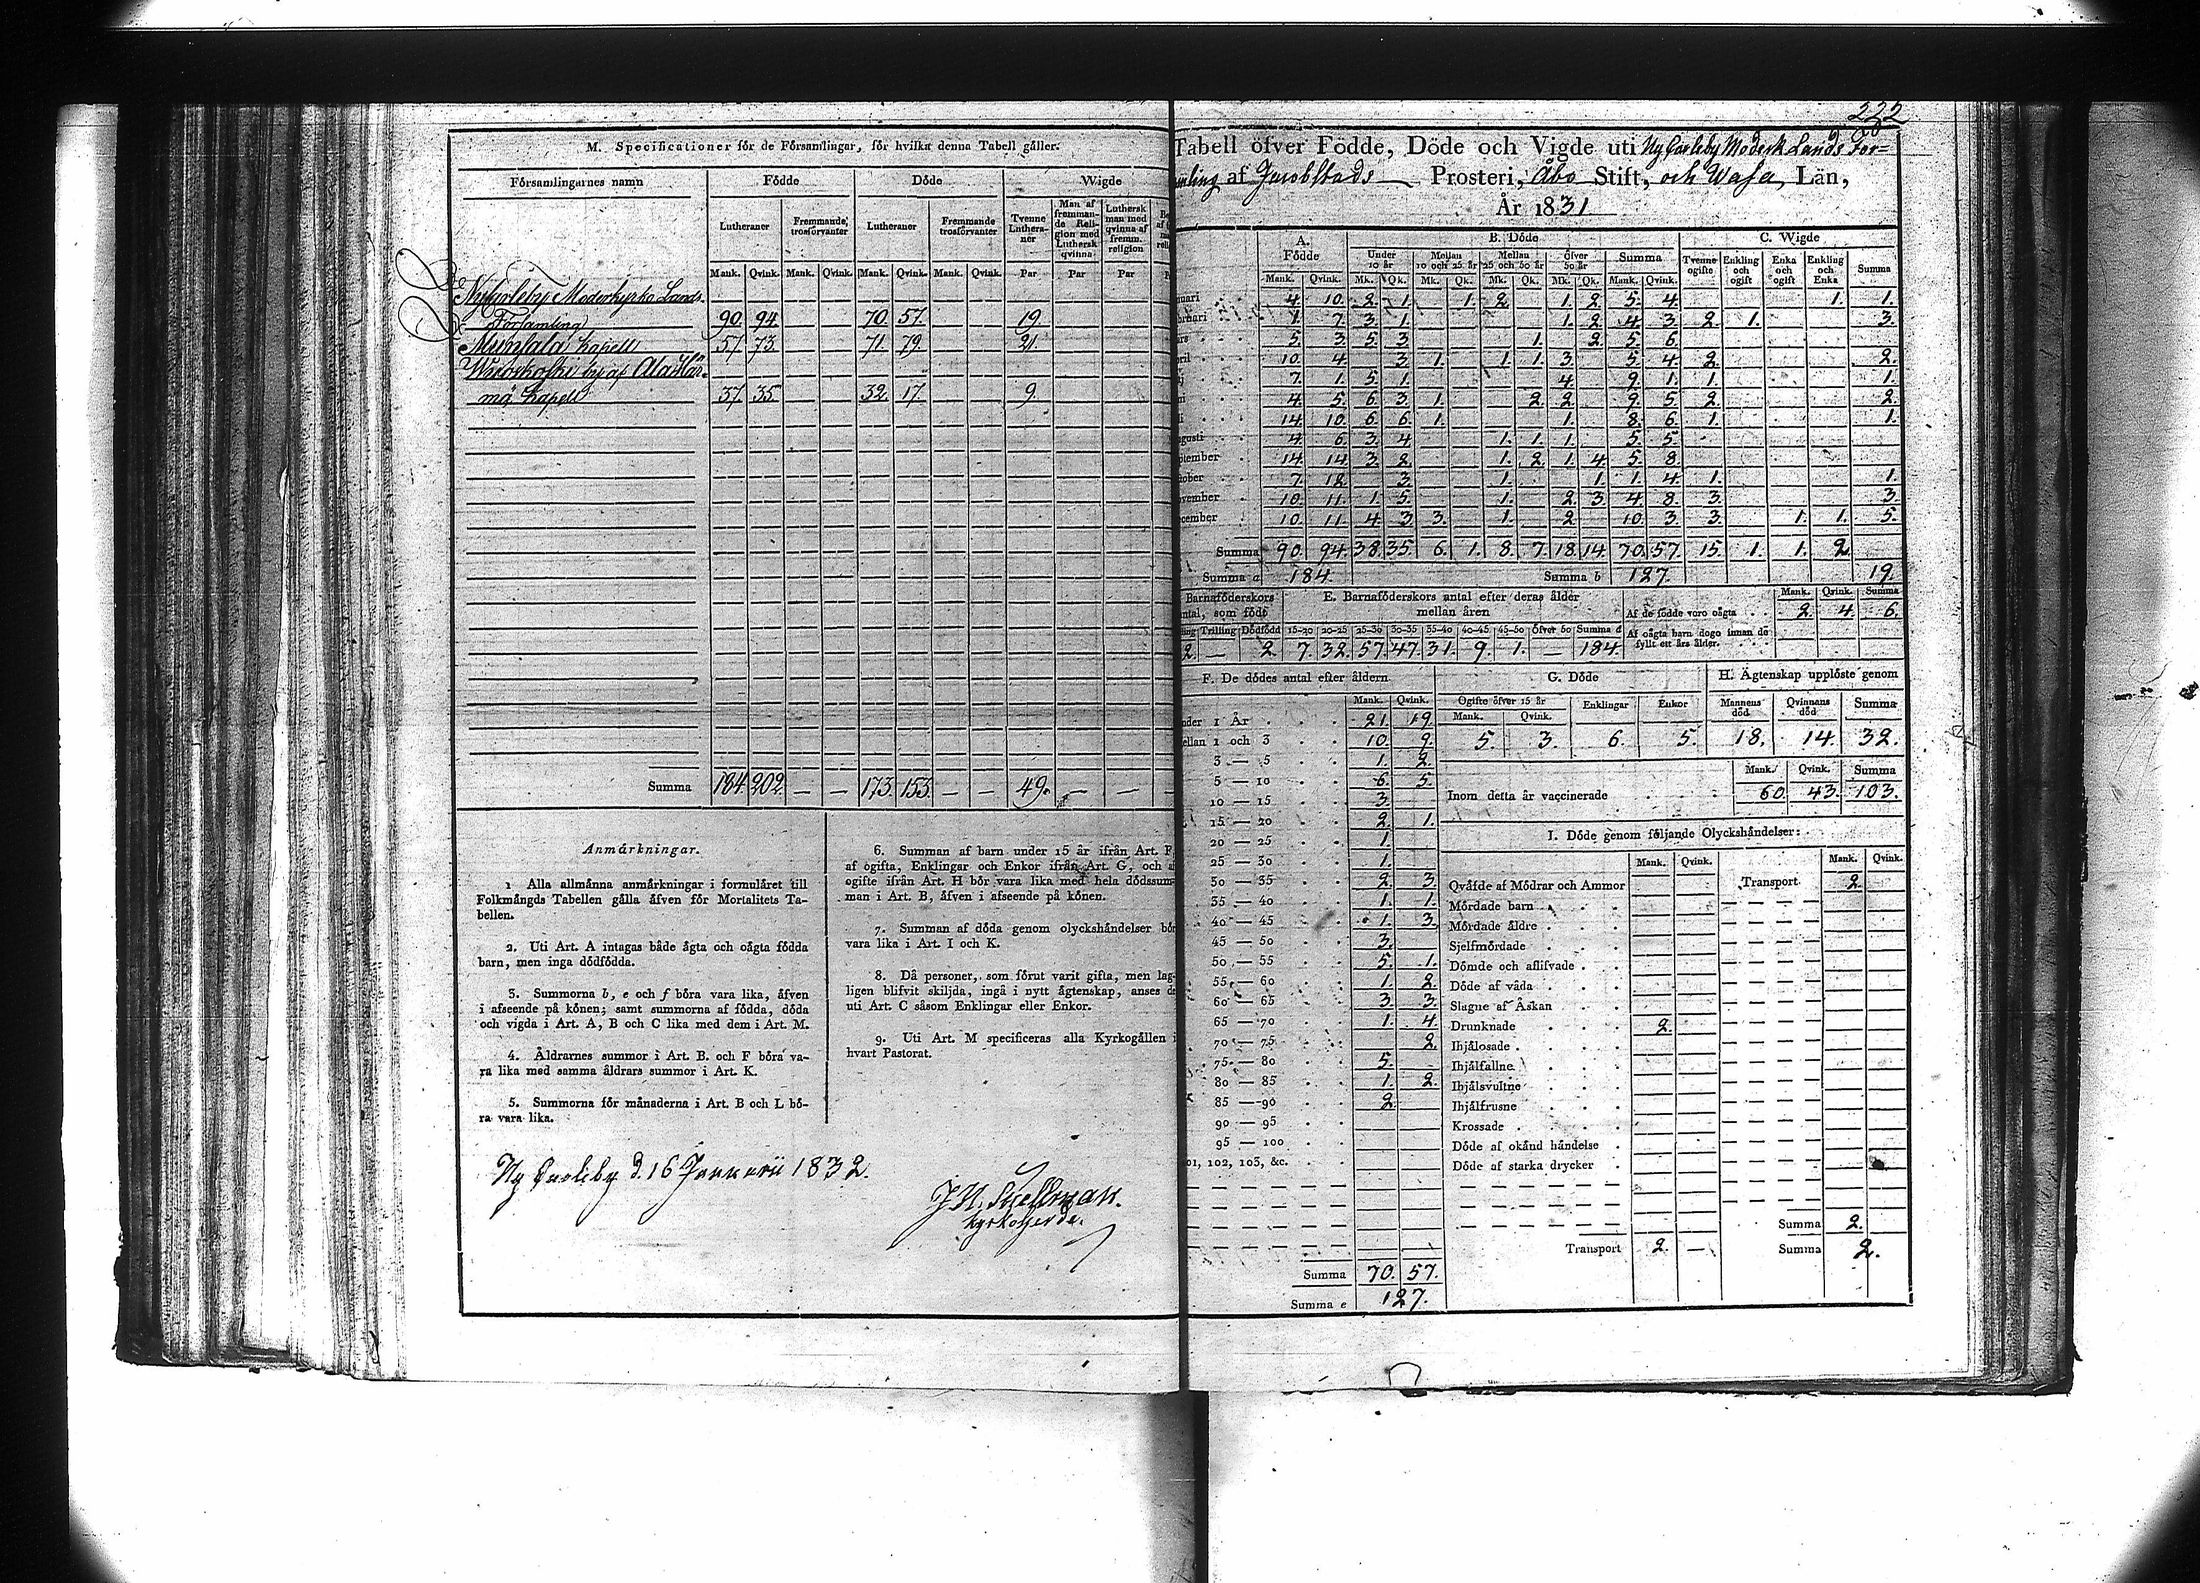 M. Specificationer för de Församlingar, för hvilka denna Tabell gäller.
Församlingarnes namn Födde Döde Wigde
Lutheraner Fremmande trosförvanter Lutheraner Fremmande trosförvanter Tvenne Lutheraner Man af fremmande Religion med Luthersk qvinna Luthersk man med qvinna af fremm. religion
Mank. Qvink. Mank. Qvink. Mank. Qvink. Mank. Qvink. Par Par Par
Nykarleby Moderkyrko Lands-
Församling 90. 94. 70. 57. 19.
Munsala Kapell 57. 73. 71. 79. 21.
by af Ala Här-
mä Kapell 37. 35. 32. 17. 9.
Summa 184 202 — — 173. 153. — — 49. — —
Anmärkningar.
1 Alla allmänna anmärkningar i formuläret till
Folkmängds Tabellen gälla äfven för Mortalitets Ta-
bellen.
2. Uti Art. A intagas både ägta och oägta födda
barn, men inga dödfödda.
3. Summorna b, e och f böra vara lika, äfven
i afseende på könen; samt summorna af födda, döda
och vigda i Art. A, B och C lika med dem i Art. M.
4. Åldrarnes summor i Art. B. och F böra va-
ra lika med samma åldrars summor i Art. K.
5. Summorna för månaderna i Art. B och L bö-
ra vara lika.
6. Summan af barn under 15 år ifrån Art. F.
af ogifta, Enklingar och Enkor ifrån Art. G, och a
ogifte ifrån Art. H bör vara lika med hela dödssum-
man i Art. B, äfven i afseende på könen.
7. Summan af döda genom olyckshändelser bör
vara lika i Art. I och K.
8. Då personer, som förut varit gifta, men lag-
ligen blifvit skiljda, ingå i nytt ägtenskap, anses de
uti Art. C såsom Enklingar eller Enkor.
9. Uti Art. M specificeras alla Kyrkogällen i
hvart Pastorat.
Ny Carleby d. 16 Januarii 1832.
J. N. Snellman.
Kyrkoherde.
222
Tabell öfver Födde, Döde och Vigde uti Ny Carleby Moderk Lands För=
amling af Jacobstads Prosteri, Åbo Stift, och Wasa Län,
År 1831
A. Födde B. Döde C. Wigde
Under 10 år Mellan 10 och 25 år Mellan 25 och 50 år Öfver 50 år Summa Tvenne ogifte Enkling och ogift Enka och ogift Enkling och Enka Summa
Mank. Qvink. Mk. Qk. Mk. Qk. Mk. Qk. Mk. Qk. Mank. Qvink.
nuari 4. 10. 2. 1. 1. 2. 1. 2. 5. 4. 1. 1.
bruari 1. 7. 3. 1. 1. 2. 4. 3. 2. 1. 3.
ars 5. 3. 5. 3. 1. 2. 5. 6.
pril 10. 4. 3. 1. 1. 1. 3. 5. 4. 2. 2.
j 7. 1. 5. 1. 4. 9. 1. 1. 1.
ni 4. 5. 6. 3. 1. 2. 2. 9. 5. 2. 2.
li 14. 10. 6. 6. 1. 1. 8. 6. 1. 1.
ugusti 4. 6. 3. 4. 1. 1. 1. 5. 5.
eptember 14. 14. 3. 2. 1. 2. 1. 4. 5. 8.
tober 7. 12. 3. 1. 1. 1. 4. 1. 1.
ovember 10. 11. 1. 5. 1. 2. 3. 4. 8. 3. 3.
ecember 10. 11. 4. 3. 3. 1. 2. 10. 3. 3. 1. 1. 5.
Summa 90. 94. 38. 35. 6. 1. 8. 7. 18. 14. 70. 57. 15. 1. 1. 2.
Summa a 184. Summa b 127. 19.
Barnaföderskors
ntal, som född
ling Trilling Dödfödd
2. — 2.
E. Barnaföderskors antal efter deras ålder
mellan åren
15-20 20-25 25-30 30-35 35-40 40-45 45-50 Öfver 50 Summa d
7. 32. 57. 47. 31. 9. 1. — 184.
Mank. Qvink. Summa
Af de födde voro oägta 2. 4. 6.
Af oägta barn dogo innan de
fyllt ett års ålder.
F. De dödes antal efter åldern
Mank. Qvink.
nder 1 År 21. 19.
ellan 1 och 3 10. 9.
3 — 5 1. 2.
5 — 10 6. 5.
10 — 15 3.
15 — 20 2. 1.
20 — 25 1.
25 — 30 1.
30 — 35 2. 3.
35 — 40 1. 1.
40 — 45 1. 3.
45 — 50 3.
50 — 55 5. 1.
55 — 60 1. 2.
60 — 65 3. 3.
65 — 70 1. 4.
70 — 75 2.
75 — 80 5.
80 — 85 1. 2.
85 — 90 2.
90 — 95
95 — 100
101, 102, 103, &c.
Summa 70. 57.
Summa e 127.
G. Döde
Ogifte öfver 15 år Enklingar Enkor
Mank. Qvink.
5. 3. 6. 5.
H. Ägtenskap upplöste genom
Mannens död Qvinnans död Summa
18. 14. 32.
Mank. Qvink. Summa
Inom detta år vaccinerade 60. 43. 103.
I. Döde genom följande Olyckshändelser:
Mank. Qvink. Mank. Qvink.
Qväfde af Mödrar och Ammor Transport 2.
Mördade barn
Mördade äldre
Sjelfmördade
Dömde och aflifvade
Döde af våda
Slagne af Åskan
Drunknade 2.
Ihjälosade
Ihjälfallne
Ihjälsvultne
Ihjälfrusne
Krossade
Döde af okänd händelse
Döde af starka drycker
Summa 2.
Transport 2. — Summa 2.